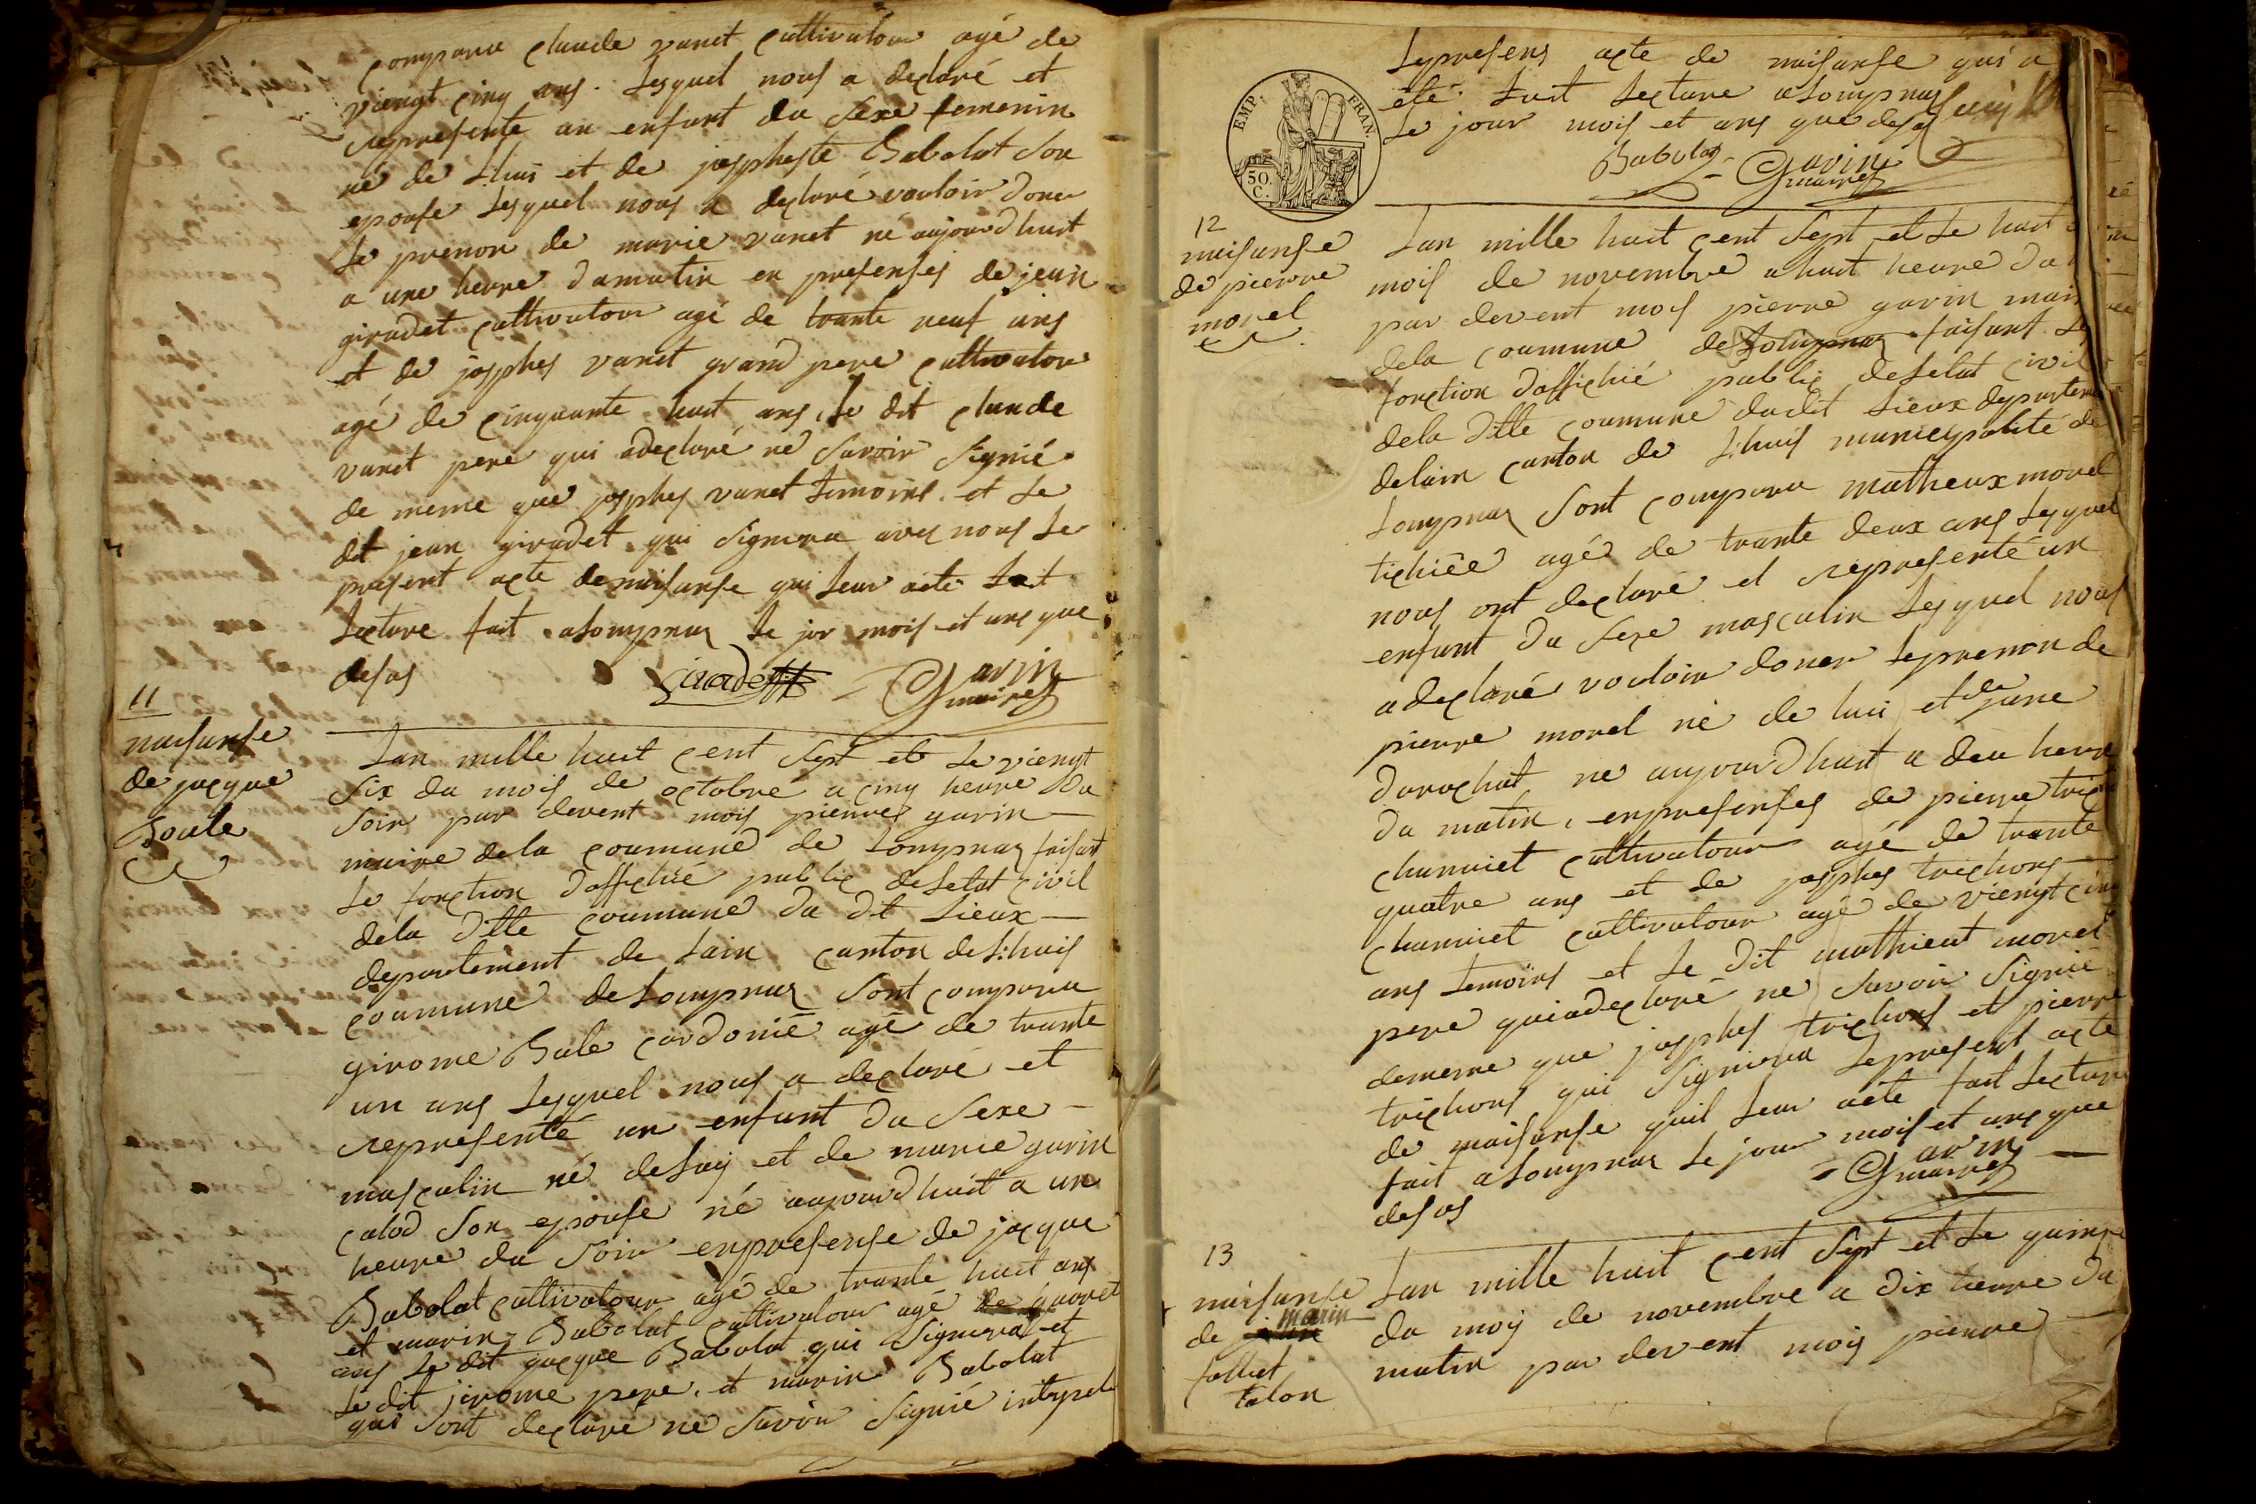 comparu claude vanet cultivateur agé de
viengt cinq ans. Lesquel nous a declaré et
represente un enfant du sexe femenin
né de Lhui et de josphefte Babolat son
epouse Lesquel nous a declaré vouloir doner
Le prenon de marie vanet né aujourd huit
a une heure damatin en presenses de jean
giradet cultivateur agé de trante neuf ans
et de josphes vanet grand pere cultivateur
agé de cinquante huit ans, Le dit claude
vanet pere qui adeclaré né savoir signié
de meme que josphes vanet temoins et Le
dit jean giradet qui signera avec nous Le
present acte de naisanse qui Leur aété Fait
Lecture fait aLompnas Le jor mois et ans que
desus
Giradett Garin maire
11
naisanse
de jacque
Boule
Lan mille huit cent sept et Le viengt
six du mois de octobre a cinq heure du
soir par devent mois pierre garin
maire dela coumune de Lompnas faisant
Le fonction d'affichié public deLetat civil
dela ditte coumune du dit Lieux
departement de Lain canton deLhuis
coumune deLompnas sont comparu
girome Bule cordonié agé de trante
un ans Lesquel nous a declaré et
representé un enfant du sexe
masculin né deLuy et de marie garin
catod son epouse né aujourdhuit a un
heure du soir enpresense de jacque
Babolat cultivateur agé de trante huit ans
et marin Babolat cultivateur agé de quaret
ans Le dit jacque Babolat qui signera et
Le dit jirome pere, et marin Babolat
qui sont declaré ne savoir signié interpel
Lepresens acte de naisanse qui a
été Fait Lecture aLompnas
Le jour mois et ans que desus
Babolat Garin maire
EMP. FRAN.
50 C.
12
naisanse
de pierre
morel
Lan mille huit cent sept et Le huit
mois de novembre a huit heure du
par devent mois pierre garin mair
dela coumune deLompnas faisant Le
fonction daffichié public deLetat civil
dela ditte coumune dudit Lieux departeme
deLain canton de Lhuis municipalité de
Lompnas sont comparu matheux morel
agé de trante deux ans Lesquel
nous ont declaré et representé un
enfant du sexe masculin Lesquel nous
adeclaré vouloir doner Leprenon de
pierre morel né de lui et de jane
darochat ne aujourdhuit a deu heure
du matin, enpresenses de pierre trich
chamiet cultivateur agé de trante
quatre ans et de josphes trichons
chamiet cultivateur agé de viengt cinq
ans temoins et Le dit mathieut morel
pere quiadeclaré ne savoir signié
dememe que josphes trichons et pierre
trichons qui signiera Lepresent acte
de naisanse quil Leur aété fait Lecture
fait aLompnas Le jour mois et ans que
desus
Garin maire
13
naisanse
de marin
folliet
talon
Lan mille huit cent sept et Le quinse
du moy de novembre a dix heure du
matin par devent mois pierre